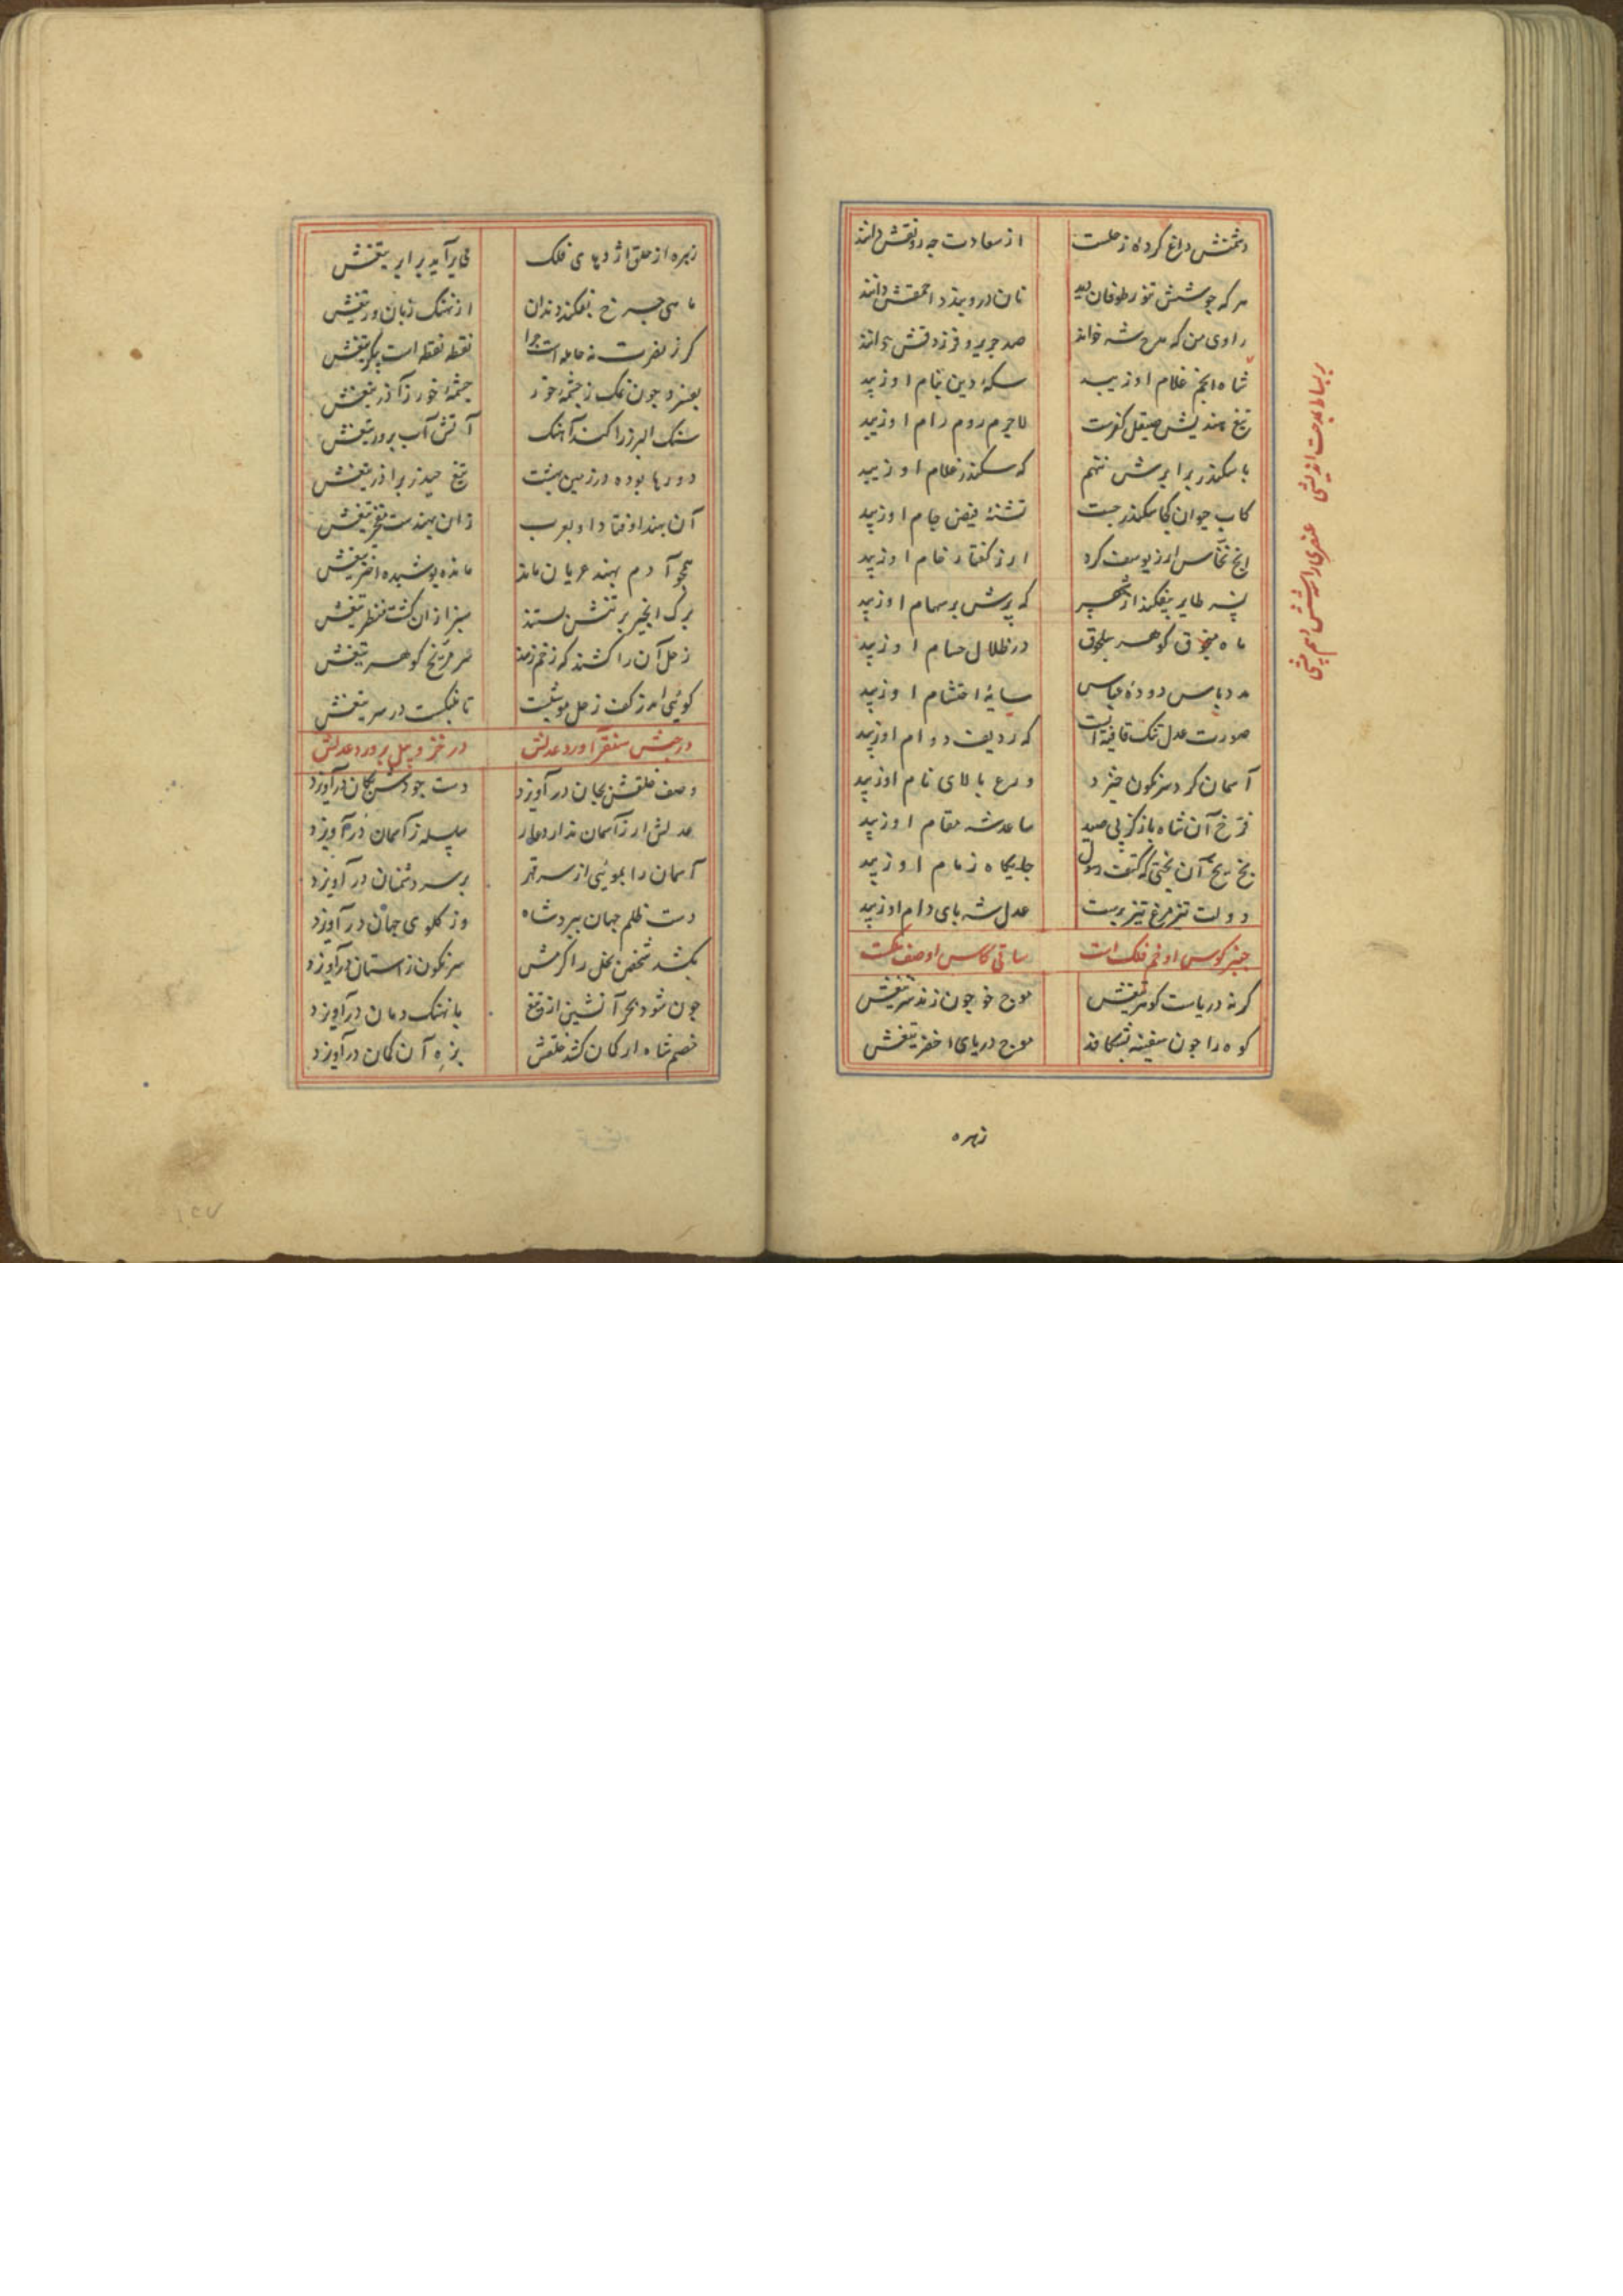 دشمنش داغ کرده زحلست از سعادت چه رونقش دانند
هر که جوشش تنور طوفان دید نان درو بندد احمقش دانند
راوی من که مدح شه خواند صد جریر و فرزدقش دانند
شاه انجم غلام او زیبد سکهٔ دین بنام او زیبد
تیغ هندیش صیقل کفرست لاجرم روم رام او زیبد
با سکندر برابرش ننهم که سکندر غلام او زیبد
کاب حیوان کجا سکندر جست تشنهٔ فیض جام او زیبد
انج نخاس ارز یوسف کرد ارز گفتار خام او زیبد
نسر طایر بیفکند از شهپر که پرش بر سهام او زیبد
ماه منجوق گوهر سلجوق در ظلال حسام او زیبد
مد دباس دودهٔ عباس سایهٔ احتشام او زیبد
صورت عدل تنگ قافیه است که ردیف دوام او زیبد
آسمان گر دسرنگون خیزد درع بالای نام او زیبد
فرخ آن شاه باز کز پی صید ساعد شه مقام او زیبد
بخ بخ آن بختی که کتف رسول جایگاه زمام او زیبد
دولت تیز مرغ تیز پرست عدل شه پای دام او زیبد
چنبر کوس او خم فلک است ساقی کاس او صف ملکست
گر نه دریاست گوهر تیغش موج خو چون زند سر تیغش
کوه را چون سفینه بشکافد موج دریای اخضر تیغش
زهره
بر بساط مدحت اندیشی عنصری را سه شش دهم پیشی
زهره از حلق اژدهای فلک می برآید برابر تیغش
ماهی چرخ بفکند دندان از نهنگ زبان ور تیغش
گر ز نصرت نه حامله است چرا نقطه نقطه است پیکر تیغش
بفسرد چون نمک ز چشمهٔ خور چشمهٔ خور ز آذر تیغش
سنگ البرز را کند آهنگ آتش آب پرور تیغش
دورها بوده در زمین بهشت تیغ حیدر برادر تیغش
آن بهند اوفتاد او بعرب زان بهندست مفخر تیغش
همچو آدم بهند عریان ماند مانده پوشیده اختر تیغش
برگ انجیر بر تنش بستند سبز از آن گشت منظر تیغش
زحل آن را کشند که زخم زمد هر مریخ گوهر تیغش
گوئی امد ز کف زحل موئیست تا شکست در سر تیغش
در حبش سنقر آورد عدلش در خزر و پیل پرورد عدلش
وصف خلقش بجان درآویزد دست جودش بکان درآویزد
عدلش ار ز آسمان ندارد عار سلسله ز آسمان درآویزد
آسمان را بموئی از سر قهر بر سر دشمنان درآویزد
دست ظلم جهان ببرد شاه وز گلوی جهان درآویزد
بکشد شخص بخل را کرمش سرنگون ز آستان درآویزد
چون شود بحر آتشین از تیغ با نهنگ دمان درآویزد
خصم شاه ار کمان کشد خلقش بزه آن کمان درآویزد